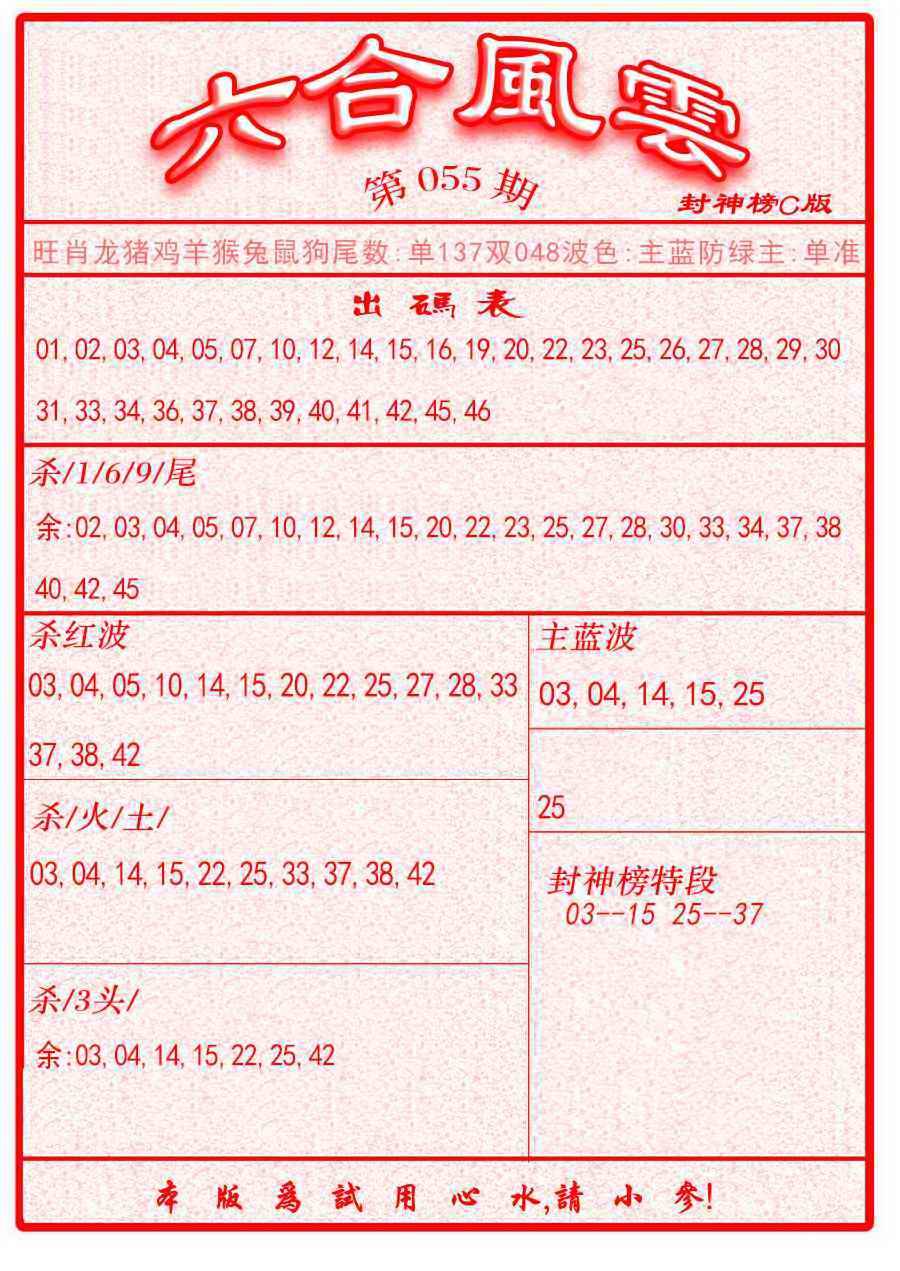 六合風雲
第055期
封神榜C版
旺肖龙猪鸡羊猴兔鼠狗尾数:单137双048波色:主蓝防绿主:单准
出碼表
01,02,03,04,05,07,10,12,14,15,16,19,20,22,23,25,26,27,28,29,30
31,33,34,36,37,38,39,40,41,42,45,46
杀/1/6/9/尾
余:02,03,04,05,07,10,12,14,15,20,22,23,25,27,28,30,33,34,37,38
40,42,45
杀红波
03,04,05,10,14,15,20,22,25,27,28,33
37,38,42
主蓝波
03,04,14,15,25
25
杀/火/土/
03,04,14,15,22,25,33,37,38,42
封神榜特段
03--15 25--37
杀/3头/
余:03,04,14,15,22,25,42
本版爲試用心水,請小參!